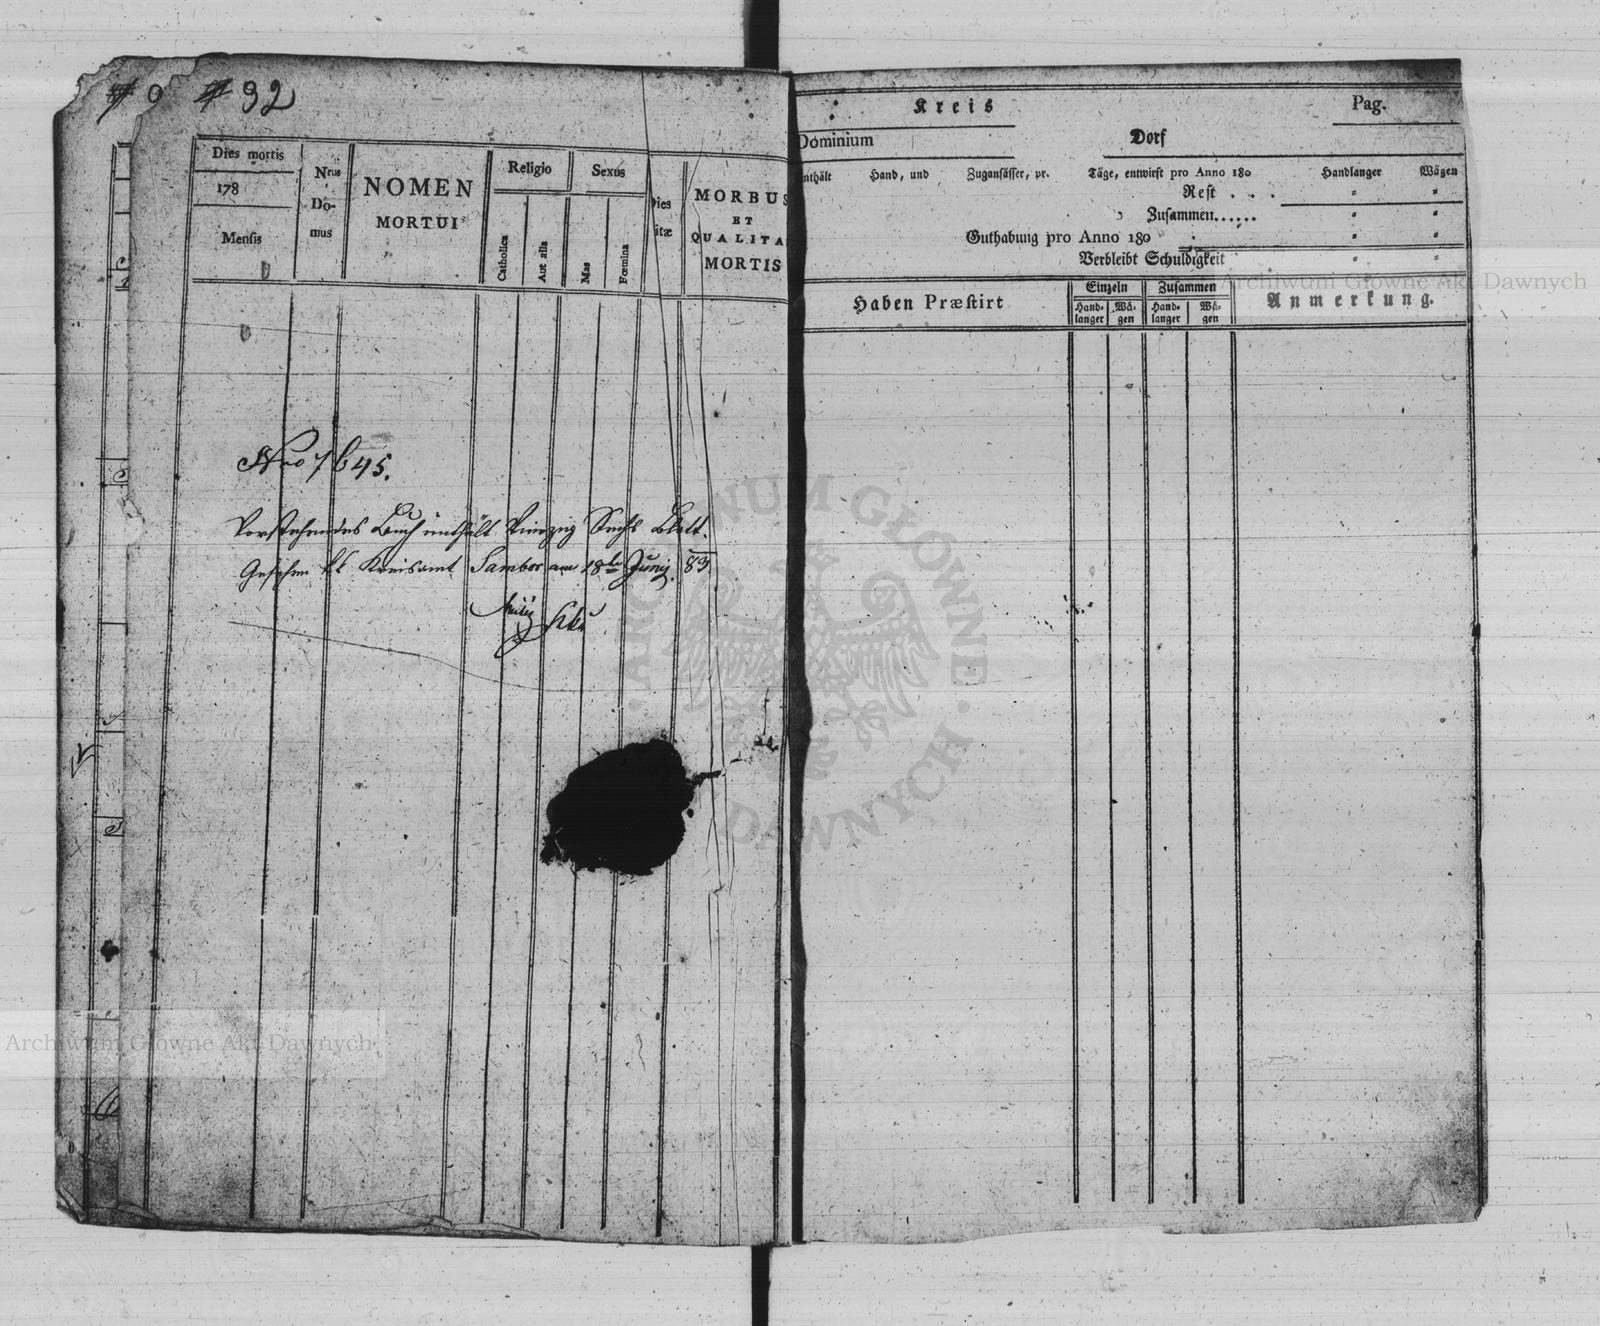 # 9 # 92
Dies mortis
178
Mensis
Nrus
Do-
mus
NOMEN
MORTUI
Religio
Catholica
Aut alia
Sexus
Mas
Fœmina
Dies
vitæ
MORBUS
ET
QUALITA
MORTIS
Nro 7645.
Vorstehendes Buch enthält Vierzig Sechs Blatt.
Gesehen kk Kreisamt Sambor am 18te Juny 83
Kreis
Pag.
Dominium
Dorf
nthält Hand, und Zugansässer, pr. Täge, entwirft pro Anno 180 Handlanger Wägen
Rest . . .
Zusammen......
Guthabung pro Anno 180
Verbleibt Schuldigkeit
Haben Præstirt
Einzeln
Hand-
langer
Wä-
gen
Zusammen
Hand-
langer
Wä-
gen
Anmerkung.
Archiwum Główne Akt Dawnych
Archiwum Główne Akt Dawnych